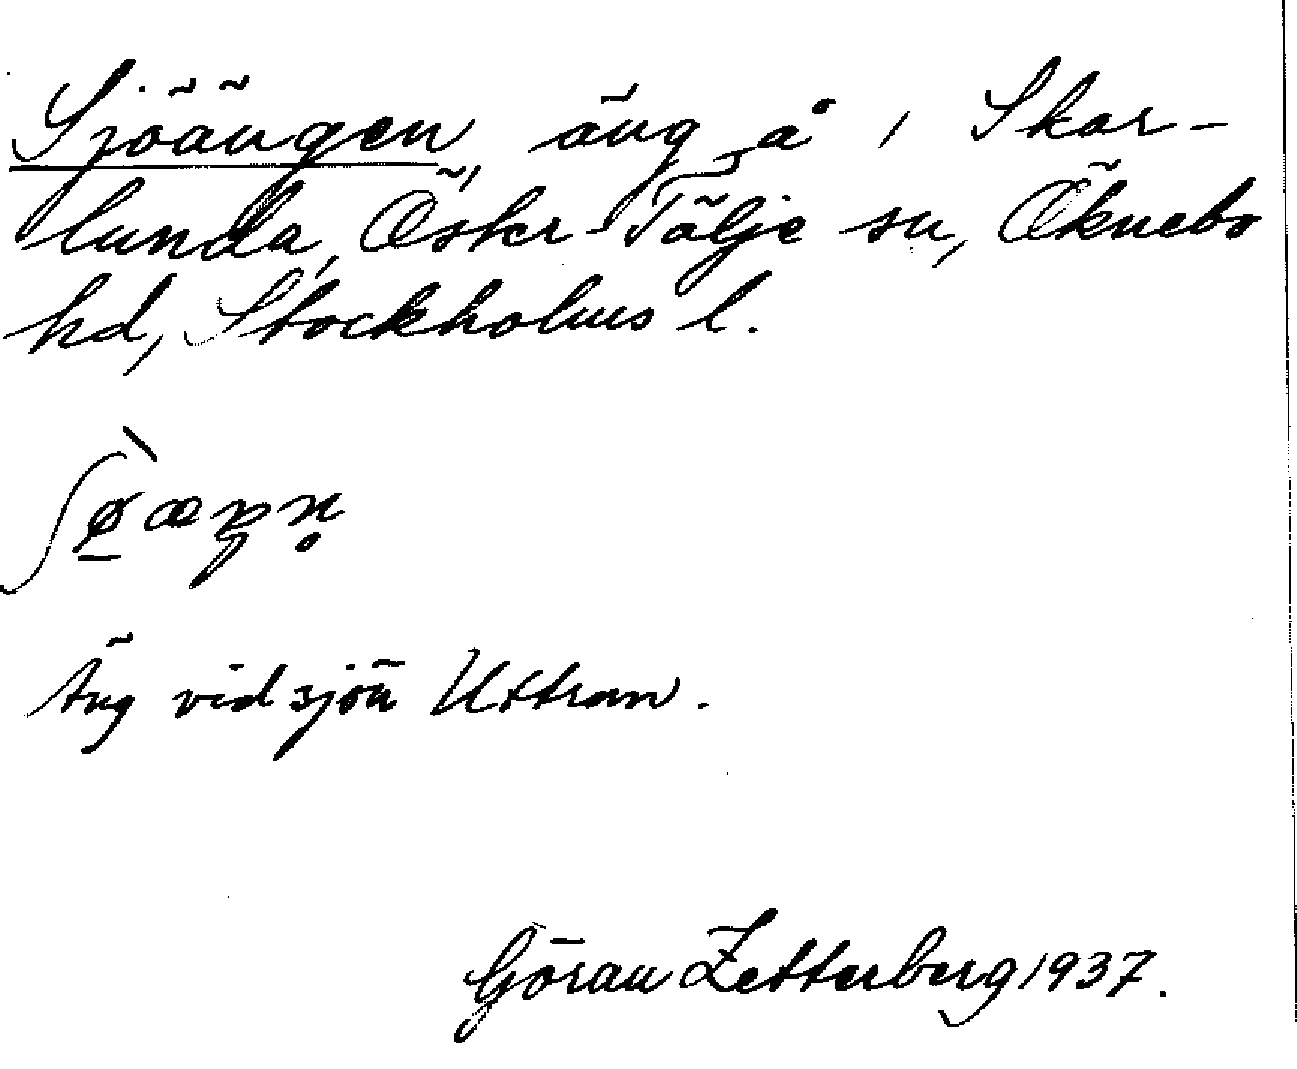 Sjöängen, äng å 1 Skar-
lunda, Öster-Tälje sn, Öknebo
hd, Stockholms l.
Äng vid sjön Uttran.
Göran Zetterberg 1937.